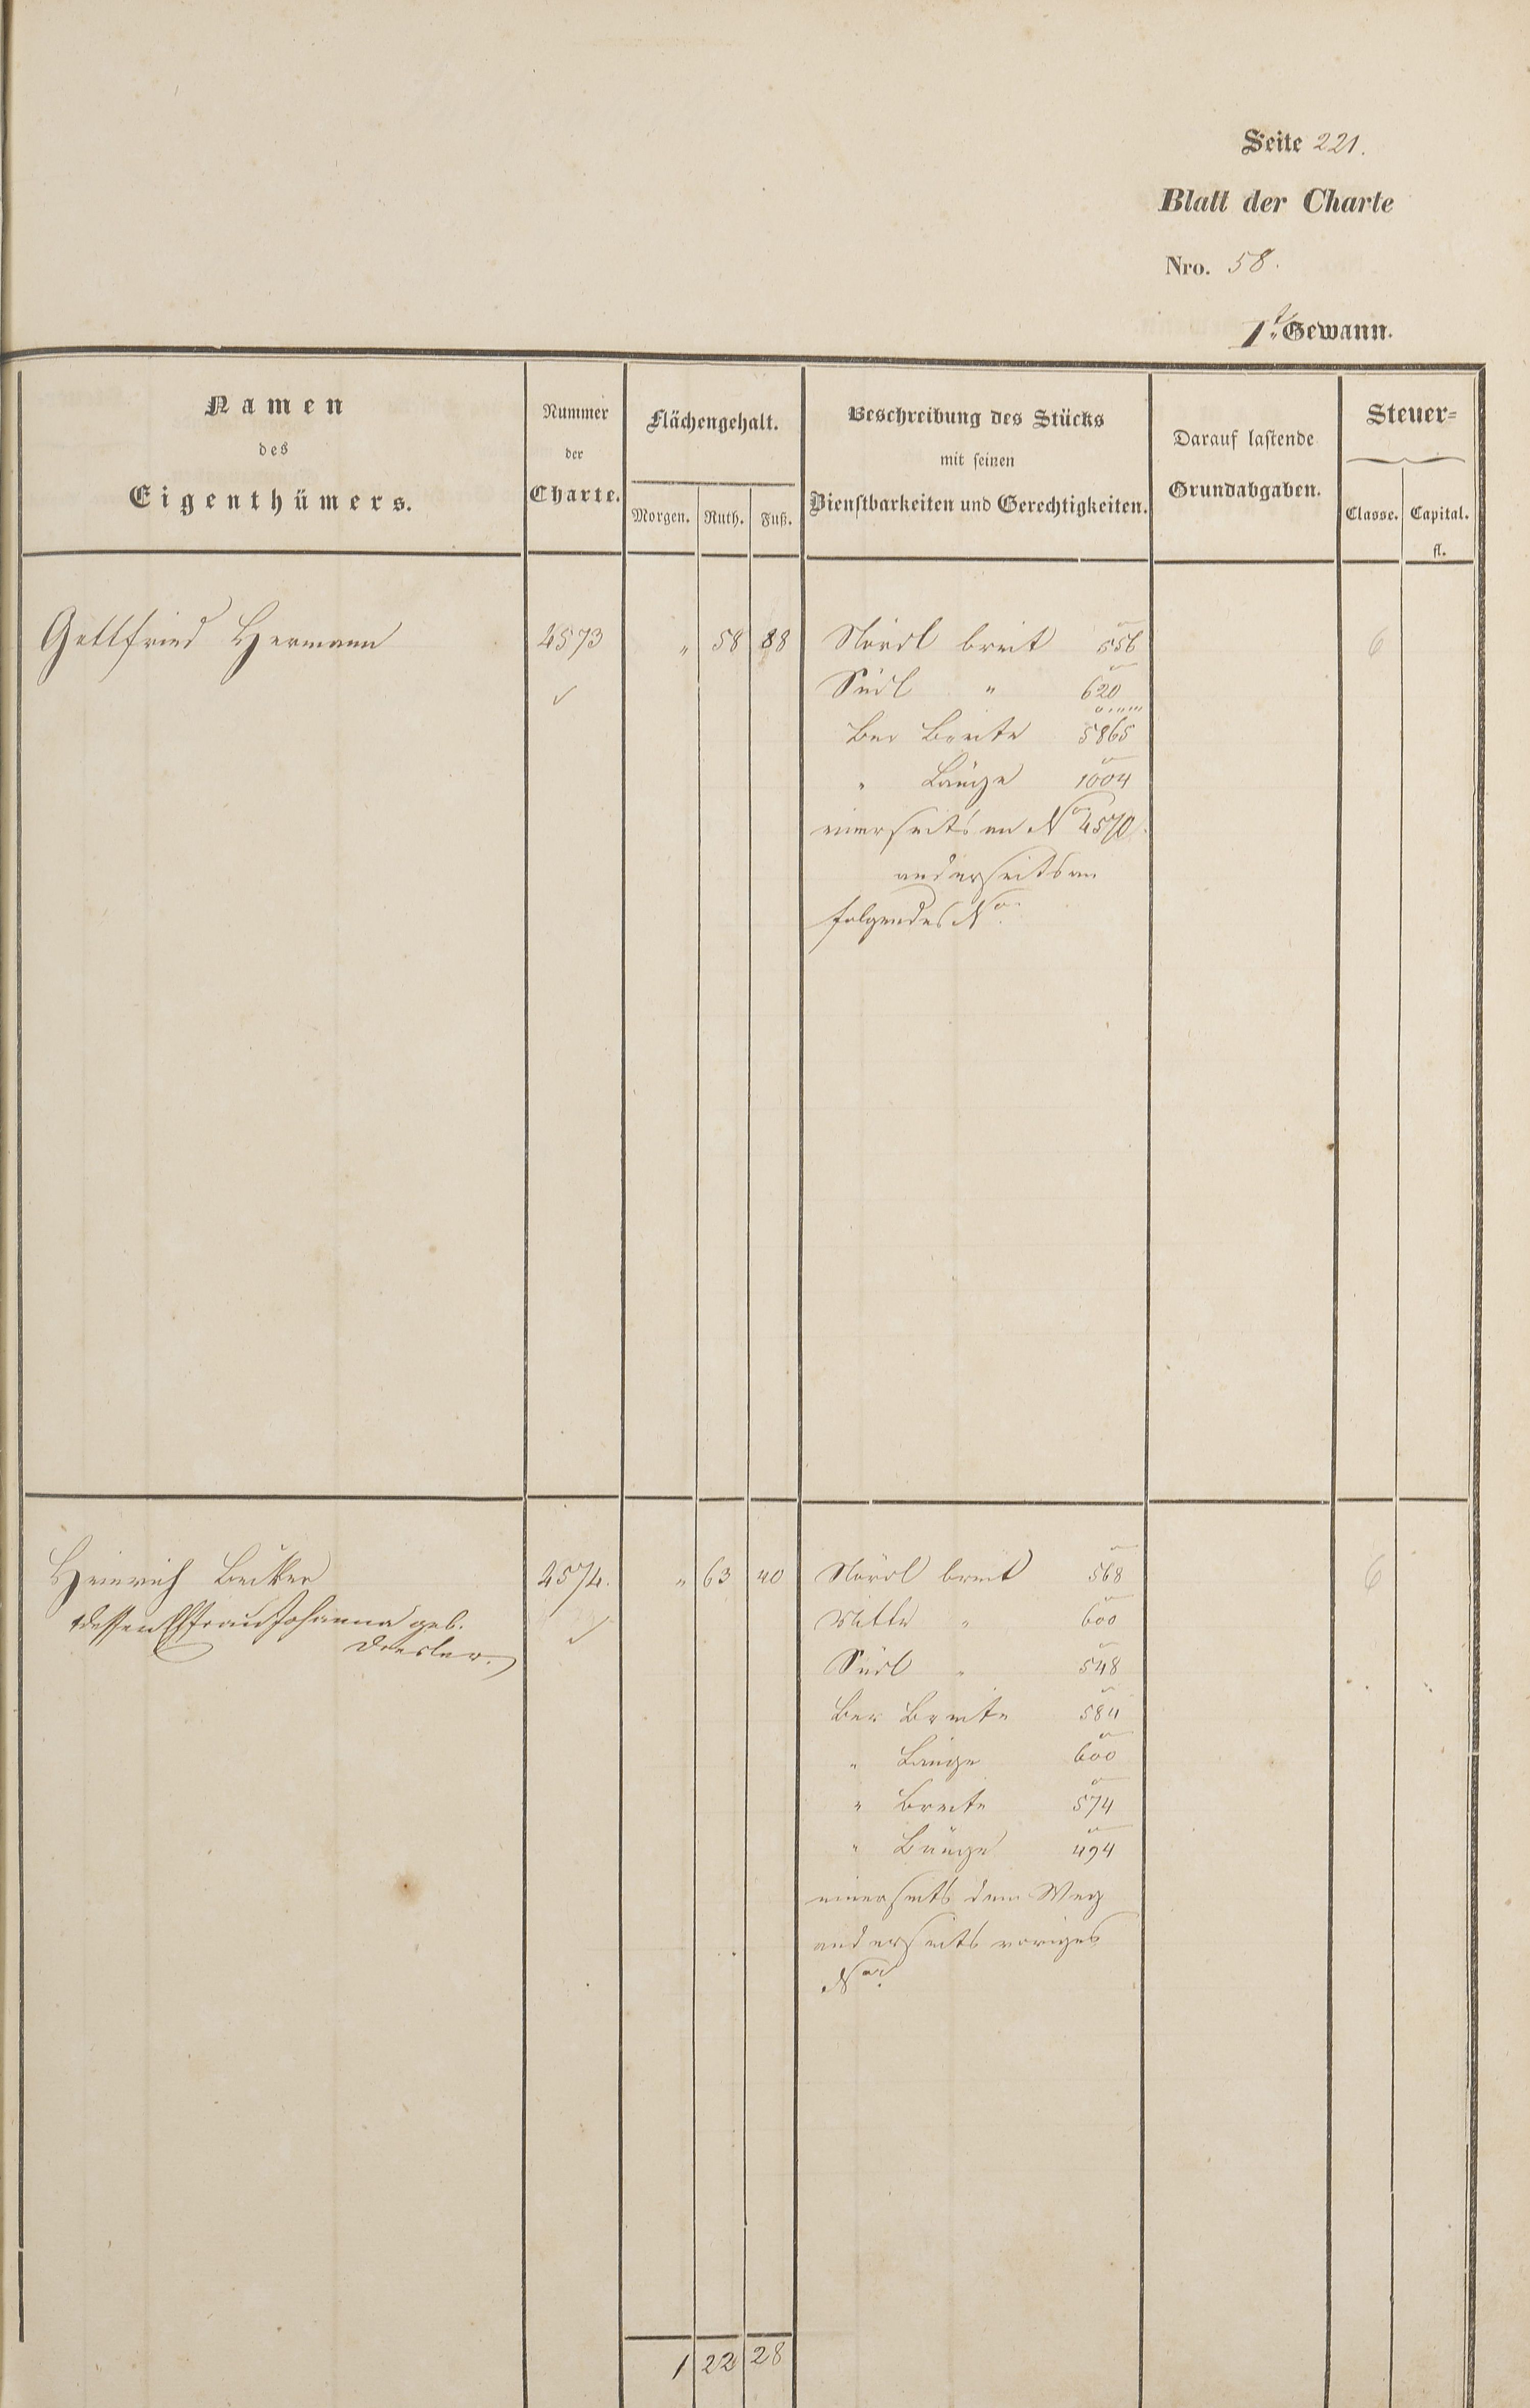 Seite 221.
Blatt der Charte
Nro. 58.
1te Gewann.
Namen
des
Eigenthümers.
Nummer
der
Charte.
Flächengehalt.
Morgen. Ruth. Fuß.
Beschreibung des Stücks
mit seinen
Dienstbarkeiten und Gerechtigkeiten.
Darauf lastende
Grundabgaben.
Steuer-
Classe. Capital.
fl.
Gottfried Hermann 4573 " 58 88 Nördl breit 556 6
Südl " 620
Ber Breite 5865
" Länge 1004
einerseits an No 4570.
anderseits an
folgendes No.
Heinrich Becker 4574. " 63 40 Nördl breit 568 6
dessen Ehfrau Johanna geb. Mitte " 600
Dresler.
Südl " 548
Ber Breite 584
" Länge 600
" Breite 574
" Länge 494
einerseits dem Weg
anderseits voriges
No.
1 22 28